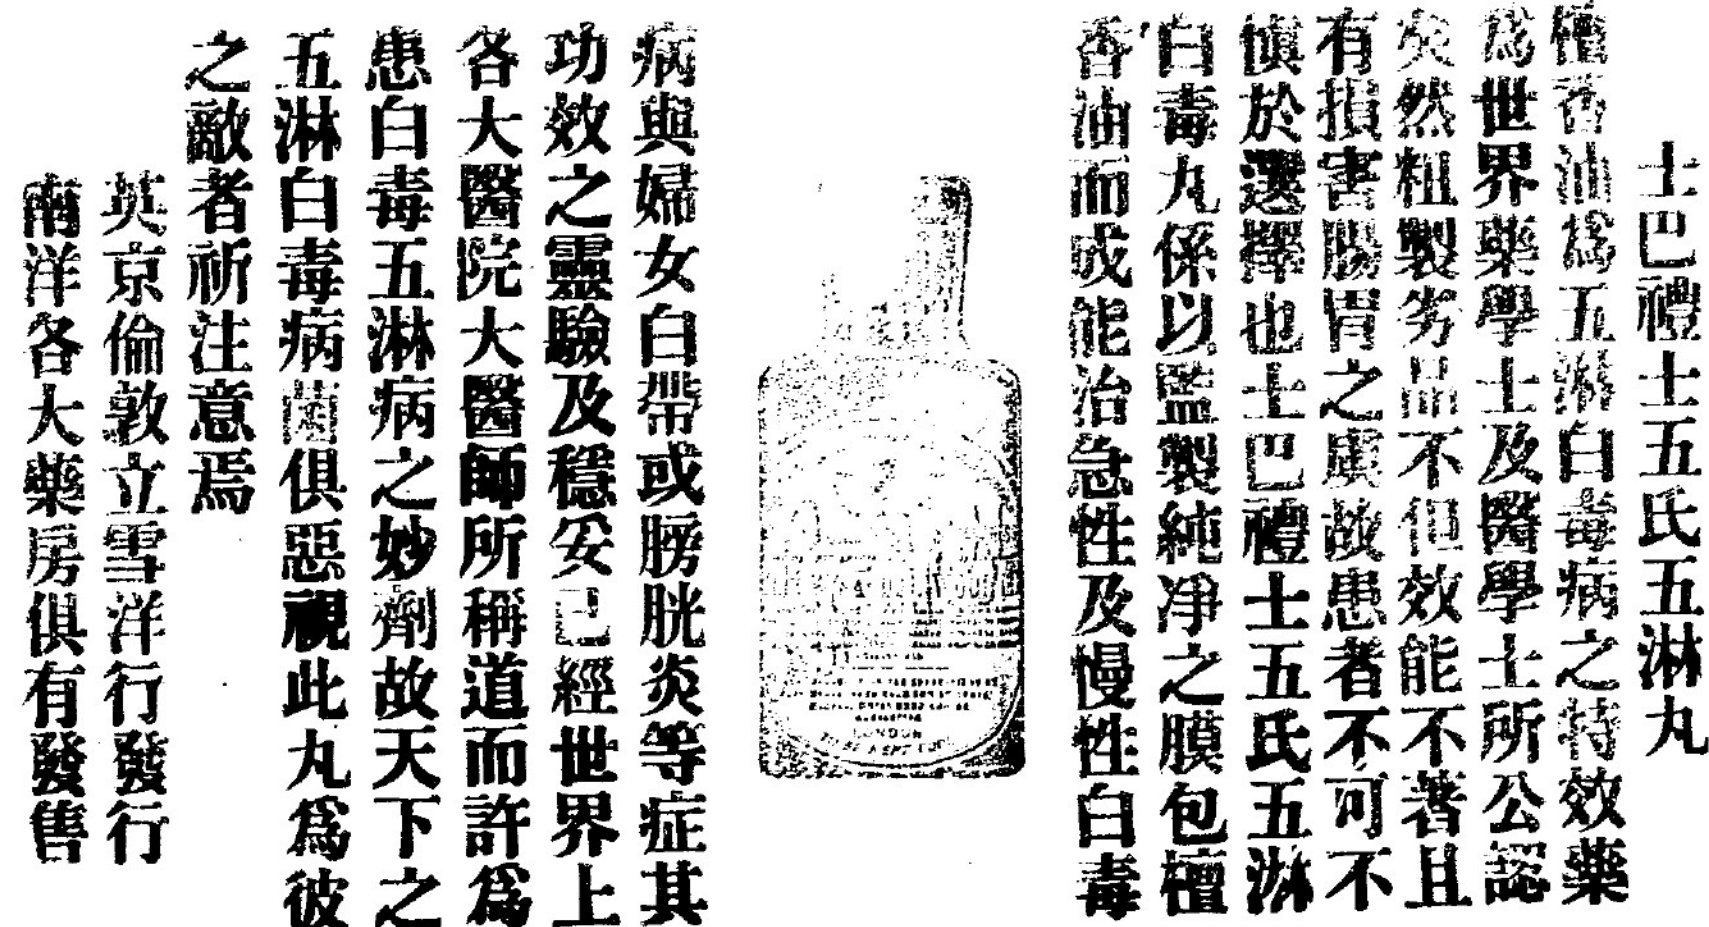 士巴禮士五氏五淋丸
檀香油爲五淋白毒病之特效藥
爲世界藥學士及醫學士所公認
矣然粗製劣品不但效能不著且
有損害腸胃之虞故患者不可不
慎於選擇也士巴禮士五氏五淋
白毒丸係以監製純凈之膜包檀
香油而成能治急性及慢性白毒
病與婦女白帶或膀胱炎等症其
功效之靈驗及穩妥已經世界上
各大醫院大醫師所稱道而許爲
患白毒五淋病之妙劑故天下之
五淋白毒病菌俱惡視此丸爲彼
之敵者祈注意焉
英京倫敦立雪洋行發行
南洋各大藥房俱有發售
LONDON